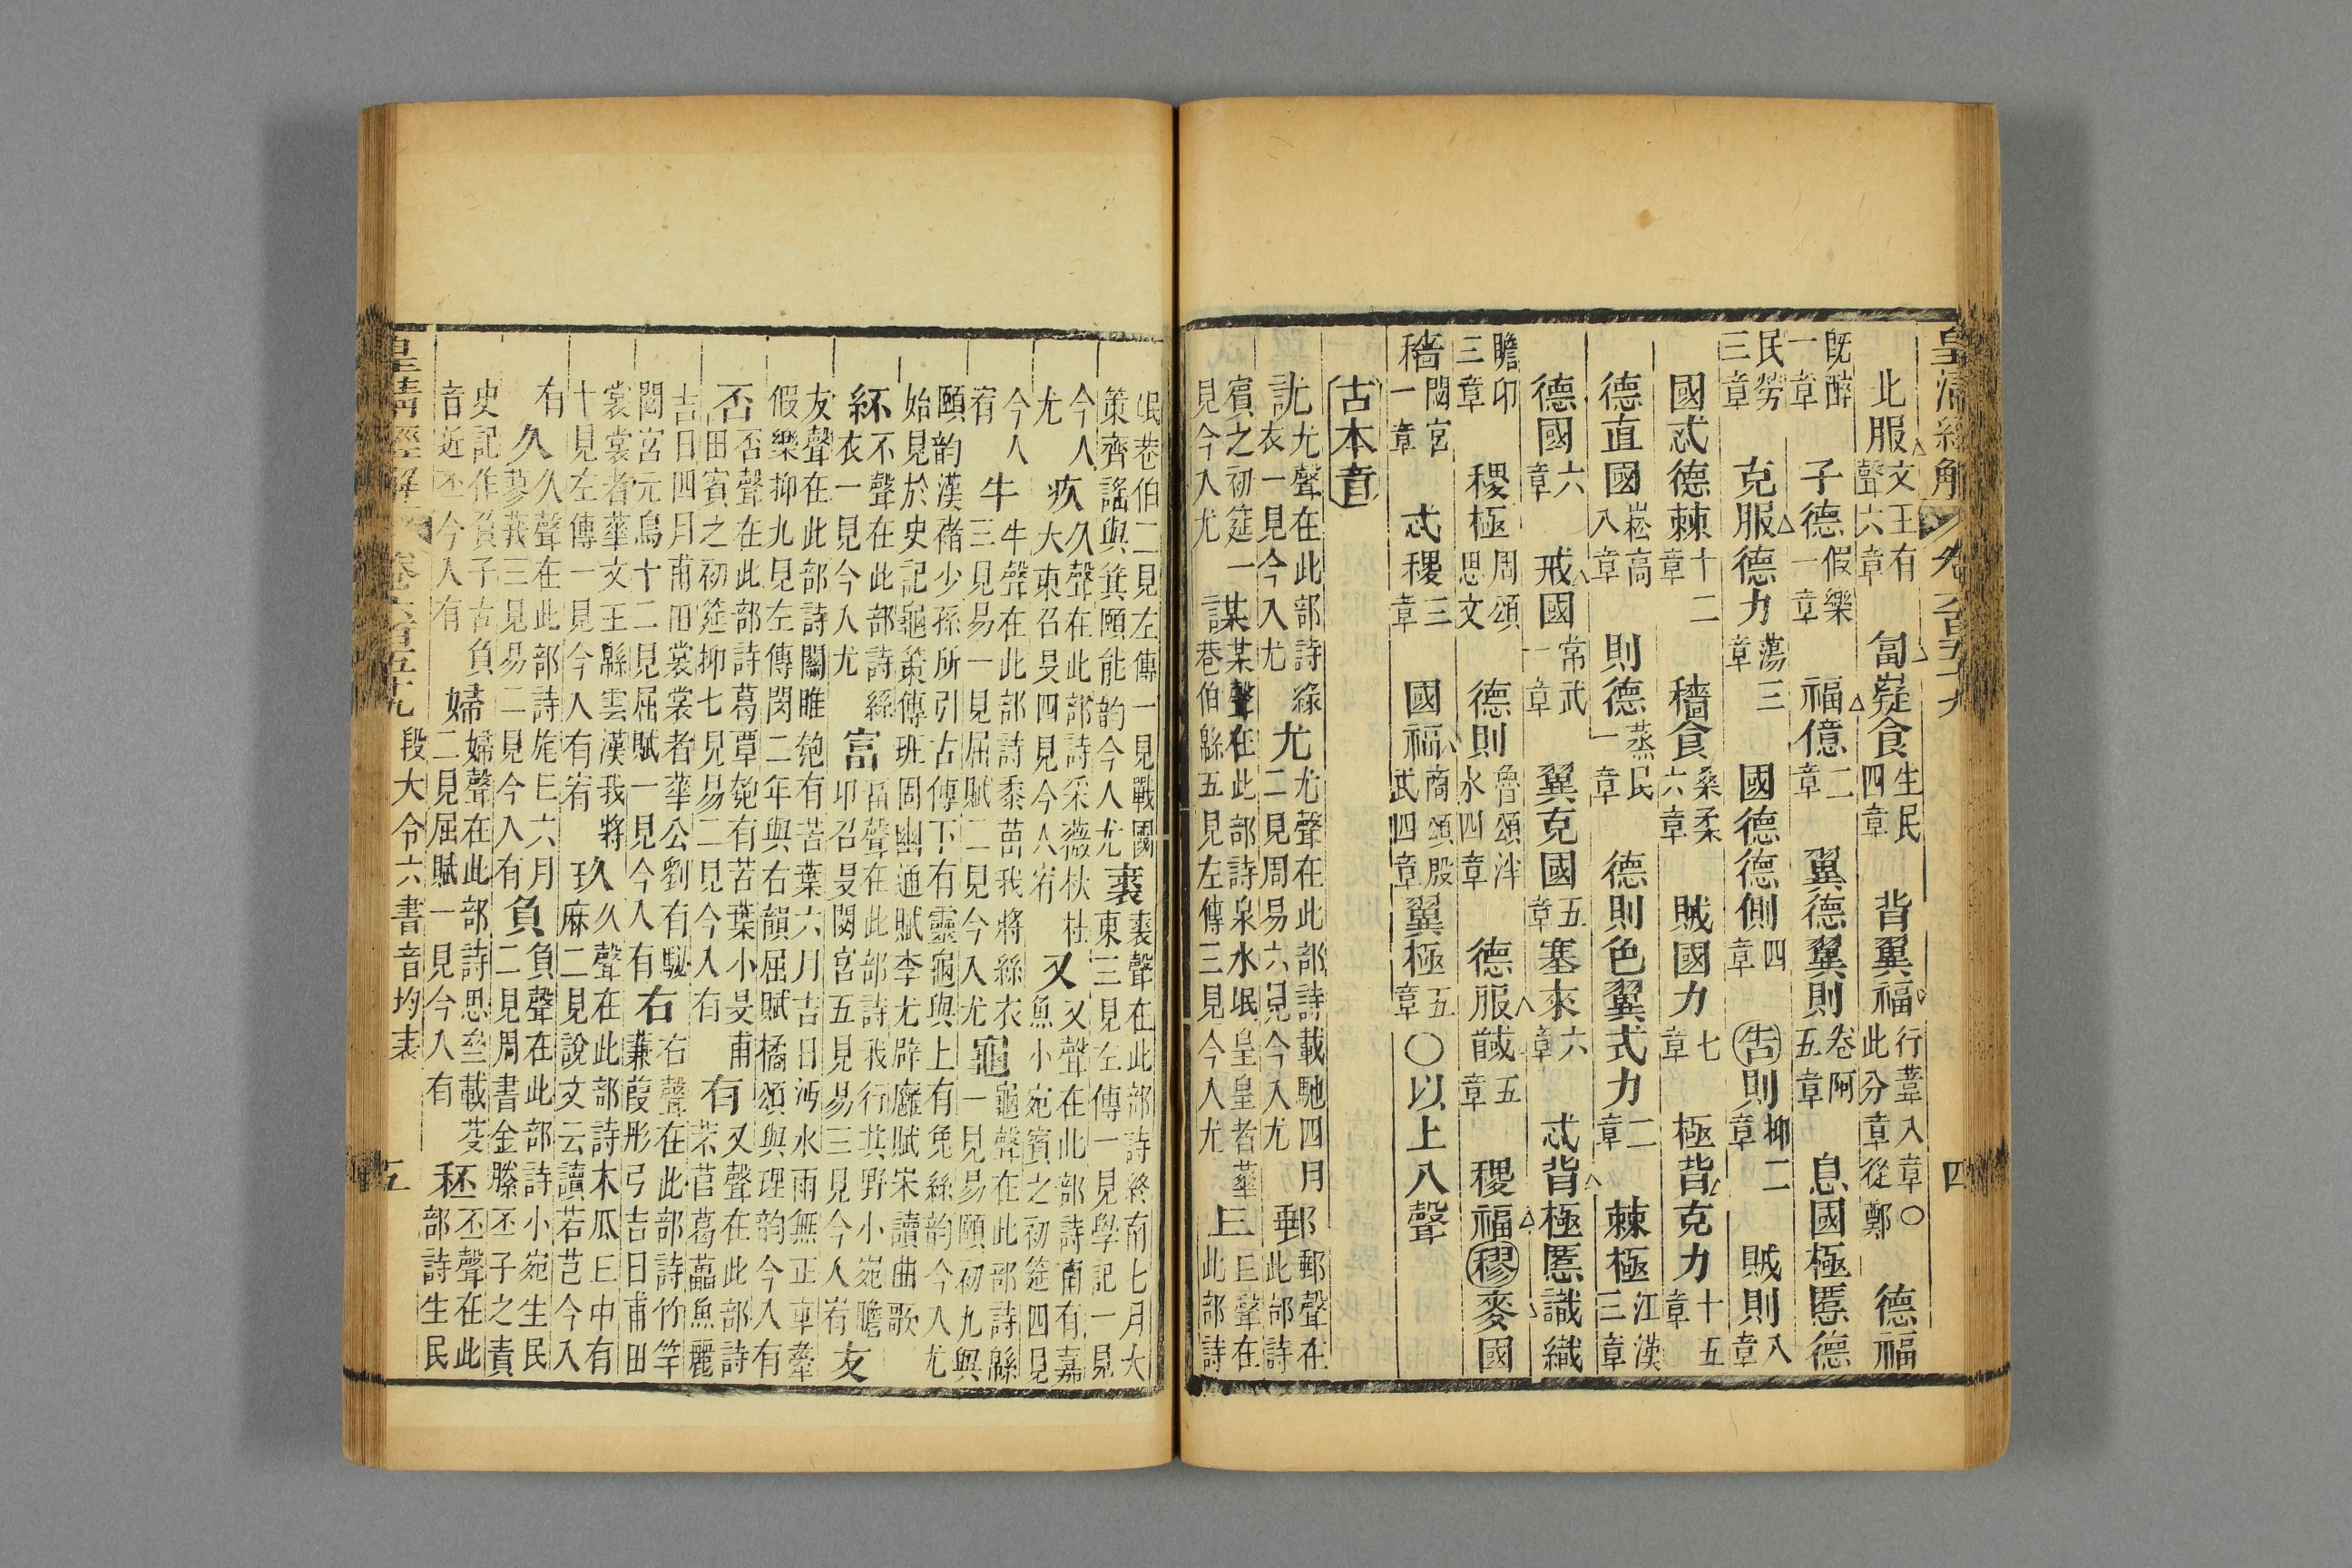 皇清經解 卷六百五十九 四
北服文王有聲六章匐嶷食生民四章背翼福行葦八章○此分章從鄭德福
既醉一章子德假樂一章福億二章翼德翼則卷阿五章息國極慝德
民勞三章克服德力蕩三章國德德側四章告則抑二章賊則八章
國忒德棘十二章穡食桑柔六章賊國力七章極背克力十五章
德直國崧高八章則德蒸民一章德則色翼式力二章棘極江漢三章
德國六章戒國常武一章翼克國五章塞來六章忒背極慝識織
瞻卬三章稷極周頌思文德則魯頌泮水四章德服馘五章稷福穋麥國
穡閟宮一章忒稷三章國福商頌殷武四章翼極五章○以上入聲
古本音
訧尤聲在此部詩綠衣一見今入尤尤尤聲在此部詩載馳四月二見周易六見今入尤郵郵聲在此部詩
賓之初筵一見今入尤謀某聲在此部詩泉水氓皇皇者華巷伯緜五見左傳三見今入尤丘丘聲在此部詩
氓巷伯二見左傳一見戰國策齊謠與箕頤能韵今人尤裘裘聲在此部詩終南七月大東三見左傳一見學記一見
今人尤疚久聲在此部詩采薇杕杜大東召旻四見今人宥又又聲在此部詩南有嘉魚小宛賓之初筵四見
今人宥牛牛聲在此部詩黍苗我將絲衣三見易一見屈賦二見今入尤龜龜聲在此部詩緜一見易頤初九與
頤韵漢褚少孫所引古傳下有靈龜與上有兔絲韵今入尤始見於史記龜策傳班固幽通賦李尤辟廱賦宋讀曲歌
紑不聲在此部詩絲衣一見今入尤富畐聲在此部詩我行其野小宛瞻卬召旻閟宮五見易三見今人宥友
友聲在此部詩關雎匏有苦葉六月吉日沔水雨無正車舝假樂抑九見左傳閔二年與右韻屈賦橘頌與理韵今入有
否否聲在此部詩葛覃匏有苦葉小旻甫田賓之初筵抑七見易二見今入有有又聲在此部詩芣苢葛藟魚麗
吉日四月甫田裳裳者華公劉有駜閟宮元鳥十二見屈賦一見今人有右右聲在此部詩竹竿蒹葭彤弓吉日甫田
裳裳者華文王緜雲漢我將十見左傳一見今人有宥玖久聲在此部詩木瓜丘中有麻二見說文云讀若芑今入
有久久聲在此部詩旄丘六月蓼莪三見易二見今入有負負聲在此部詩小宛生民二見周書金縢丕子之責
史記作負子古負音近丕今入有婦婦聲在此部詩思齊載芟二見屈賦一見今入有秠丕聲在此部詩生民
皇清經解 卷六百五十九 段大令六書音均表 五